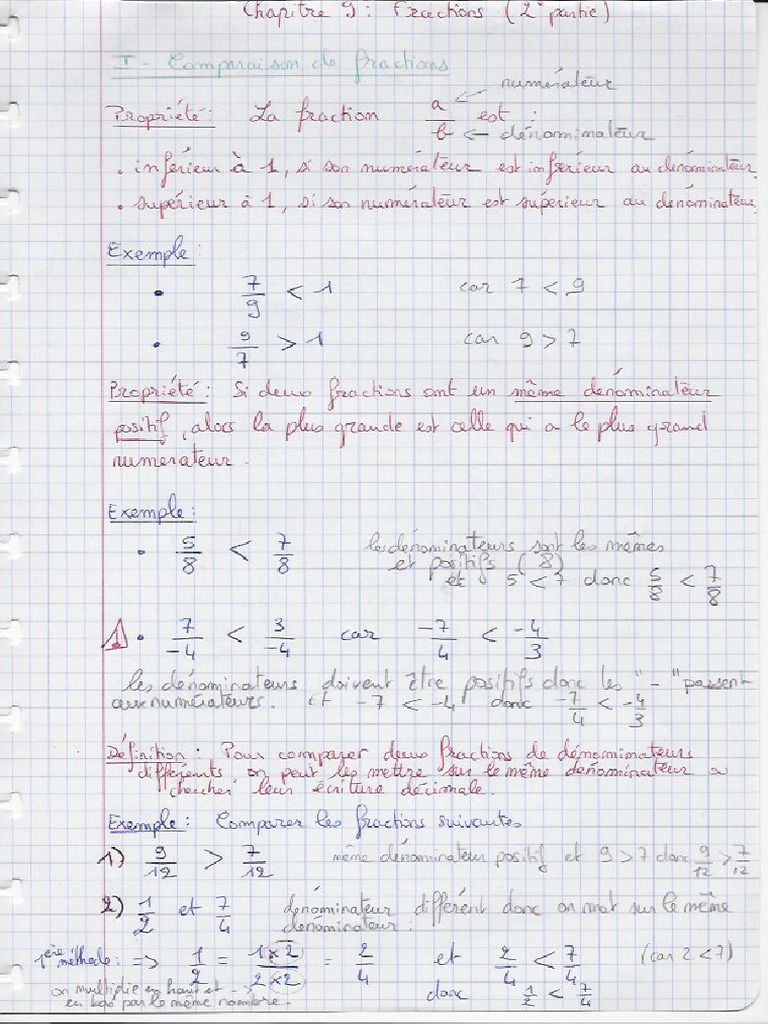 Chapitre 9 : Fractions (2e partie)
I - Comparaison de fractions
numérateur
Propriété : La fraction a/b est :
dénominateur
• inférieur à 1, si son numérateur est inférieur au dénominateur.
• supérieur à 1, si son numérateur est supérieur au dénominateur.
Exemple :
• 7/9 < 1 car 7 < 9
• 9/7 > 1 car 9 > 7
Propriété : Si deux fractions ont un même dénominateur
positif, alors la plus grande est celle qui a le plus grand
numérateur.
Exemple :
• 5/8 < 7/8 les dénominateurs sont les mêmes
et positifs (8)
et 5 < 7 donc 5/8 < 7/8
• 7/-4 < 3/-4 car -7/4 < -4/3
les dénominateurs doivent être positifs donc les "-" passent
aux numérateurs. et -7 < -4 donc -7/4 < -4/3
Définition : Pour comparer deux fractions de dénominateurs
différents on peut les mettre sur le même dénominateur
chercher leur écriture décimale.
Exemple : Comparer les fractions suivantes
1) 9/12 > 7/12 même dénominateur positif et 9 > 7 donc 9/12 > 7/12
2) 1/2 et 7/4 dénominateur différent donc on met sur le même
dénominateur.
1ère méthode : => 1/2 = 1×2/2×2 = 2/4 et 2/4 < 7/4 (car 2 < 7)
on multiplie en haut et -> donc 1/2 < 7/4
en bas par le même nombre.